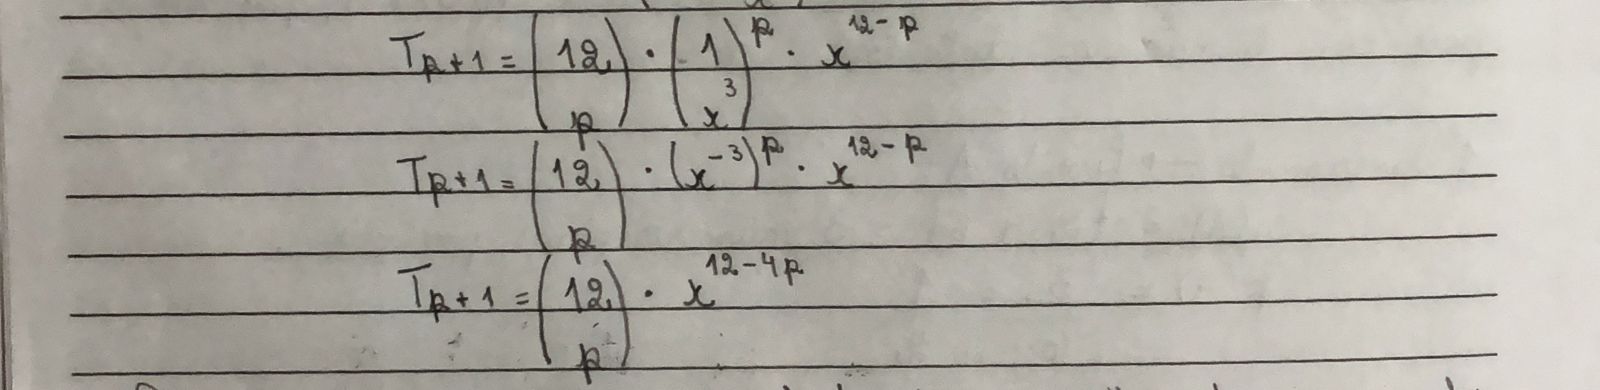 T_{p+1} = \binom{12}{p} \cdot \left(\frac{1}{x^3}\right)^p \cdot x^{12-p}
T_{p+1} = \binom{12}{p} \cdot (x^{-3})^p \cdot x^{12-p}
T_{p+1} = \binom{12}{p} \cdot x^{12-4p}